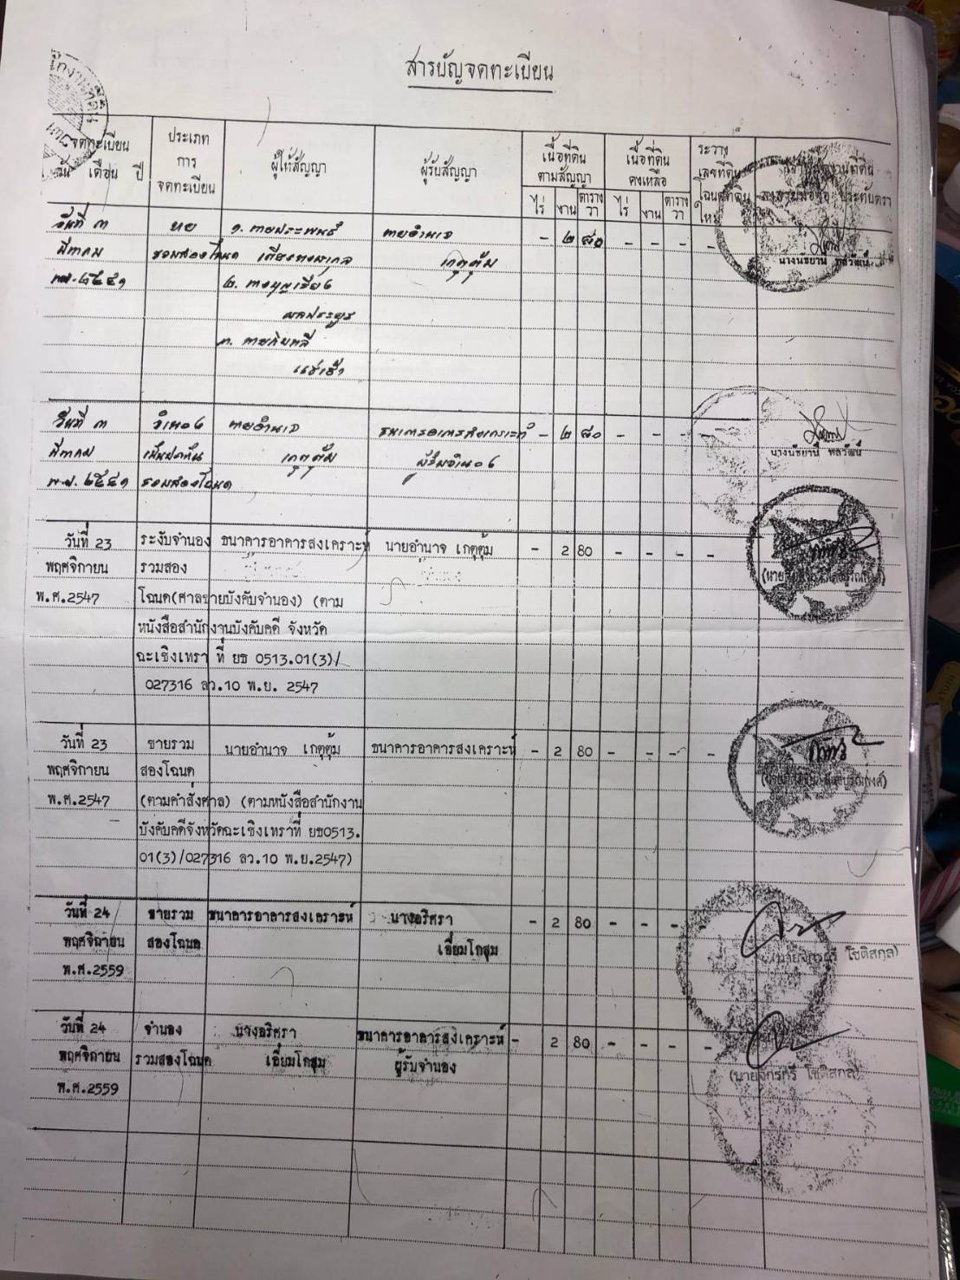 สารบัญจดทะเบียน
จดทะเบียน
วัน เดือน ปี
ประเภท
การ
จดทะเบียน
ผู้ให้สัญญา
ผู้รับสัญญา
เนื้อที่ดิน
ตามสัญญา
ไร่ งาน ตาราง
วา
เนื้อที่ดิน
คงเหลือ
ไร่ งาน ตาราง
วา
ระวาง
เลขที่ดิน
โฉนดที่ดิน
ใหม่
เจ้าพนักงานที่ดิน
ลงลายมือชื่อ ประทับตรา
วันที่ ๓ ขาย ๑. นายประพนธ์ นายอำนาจ - ๒ ๘๐ - - - -
มีนาคม รวมสองโฉนด เกตุตุ้ม
พ.ศ.๒๕๔๑ ๒.
๓.
วันที่ ๓ จำนอง นายอำนาจ ธนาคารอาคารสงเคราะห์ - ๒ ๘๐ - - - -
มีนาคม เป็นประกัน เกตุตุ้ม ผู้รับจำนอง
พ.ศ.๒๕๔๑ รวมสองโฉนด
วันที่ 23 ระงับจำนอง ธนาคารอาคารสงเคราะห์ นายอำนาจ เกตุตุ้ม - 2 80 - - - -
พฤศจิกายน รวมสอง
พ.ศ.2547 โฉนด(ศาลขายบังคับจำนอง) (ตาม
หนังสือสำนักงานบังคับคดี จังหวัด
ฉะเชิงเทรา ที่ ยธ 0513.01(3)/
027316 ลว.10 พ.ย. 2547
วันที่ 23 ขายรวม นายอำนาจ เกตุตุ้ม ธนาคารอาคารสงเคราะห์ - 2 80 - - - -
พฤศจิกายน สองโฉนด
พ.ศ.2547 (ตามคำสั่งศาล) (ตามหนังสือสำนักงาน
บังคับคดีจังหวัดฉะเชิงเทราที่ ยธ0513.
01(3)/027316 ลว.10 พ.ย.2547)
วันที่ 24 ขายรวม ธนาคารอาคารสงเคราะห์ นางอริศรา - 2 80 - - - -
พฤศจิกายน สองโฉนด เอี่ยมโกสุม
พ.ศ.2559 โชติสกุล)
วันที่ 24 จำนอง นางอริศรา ธนาคารอาคารสงเคราะห์ - 2 80 - - - -
พฤศจิกายน รวมสองโฉนด เอี่ยมโกสุม ผู้รับจำนอง (นายจักรศรี โชติสกุล)
พ.ศ.2559